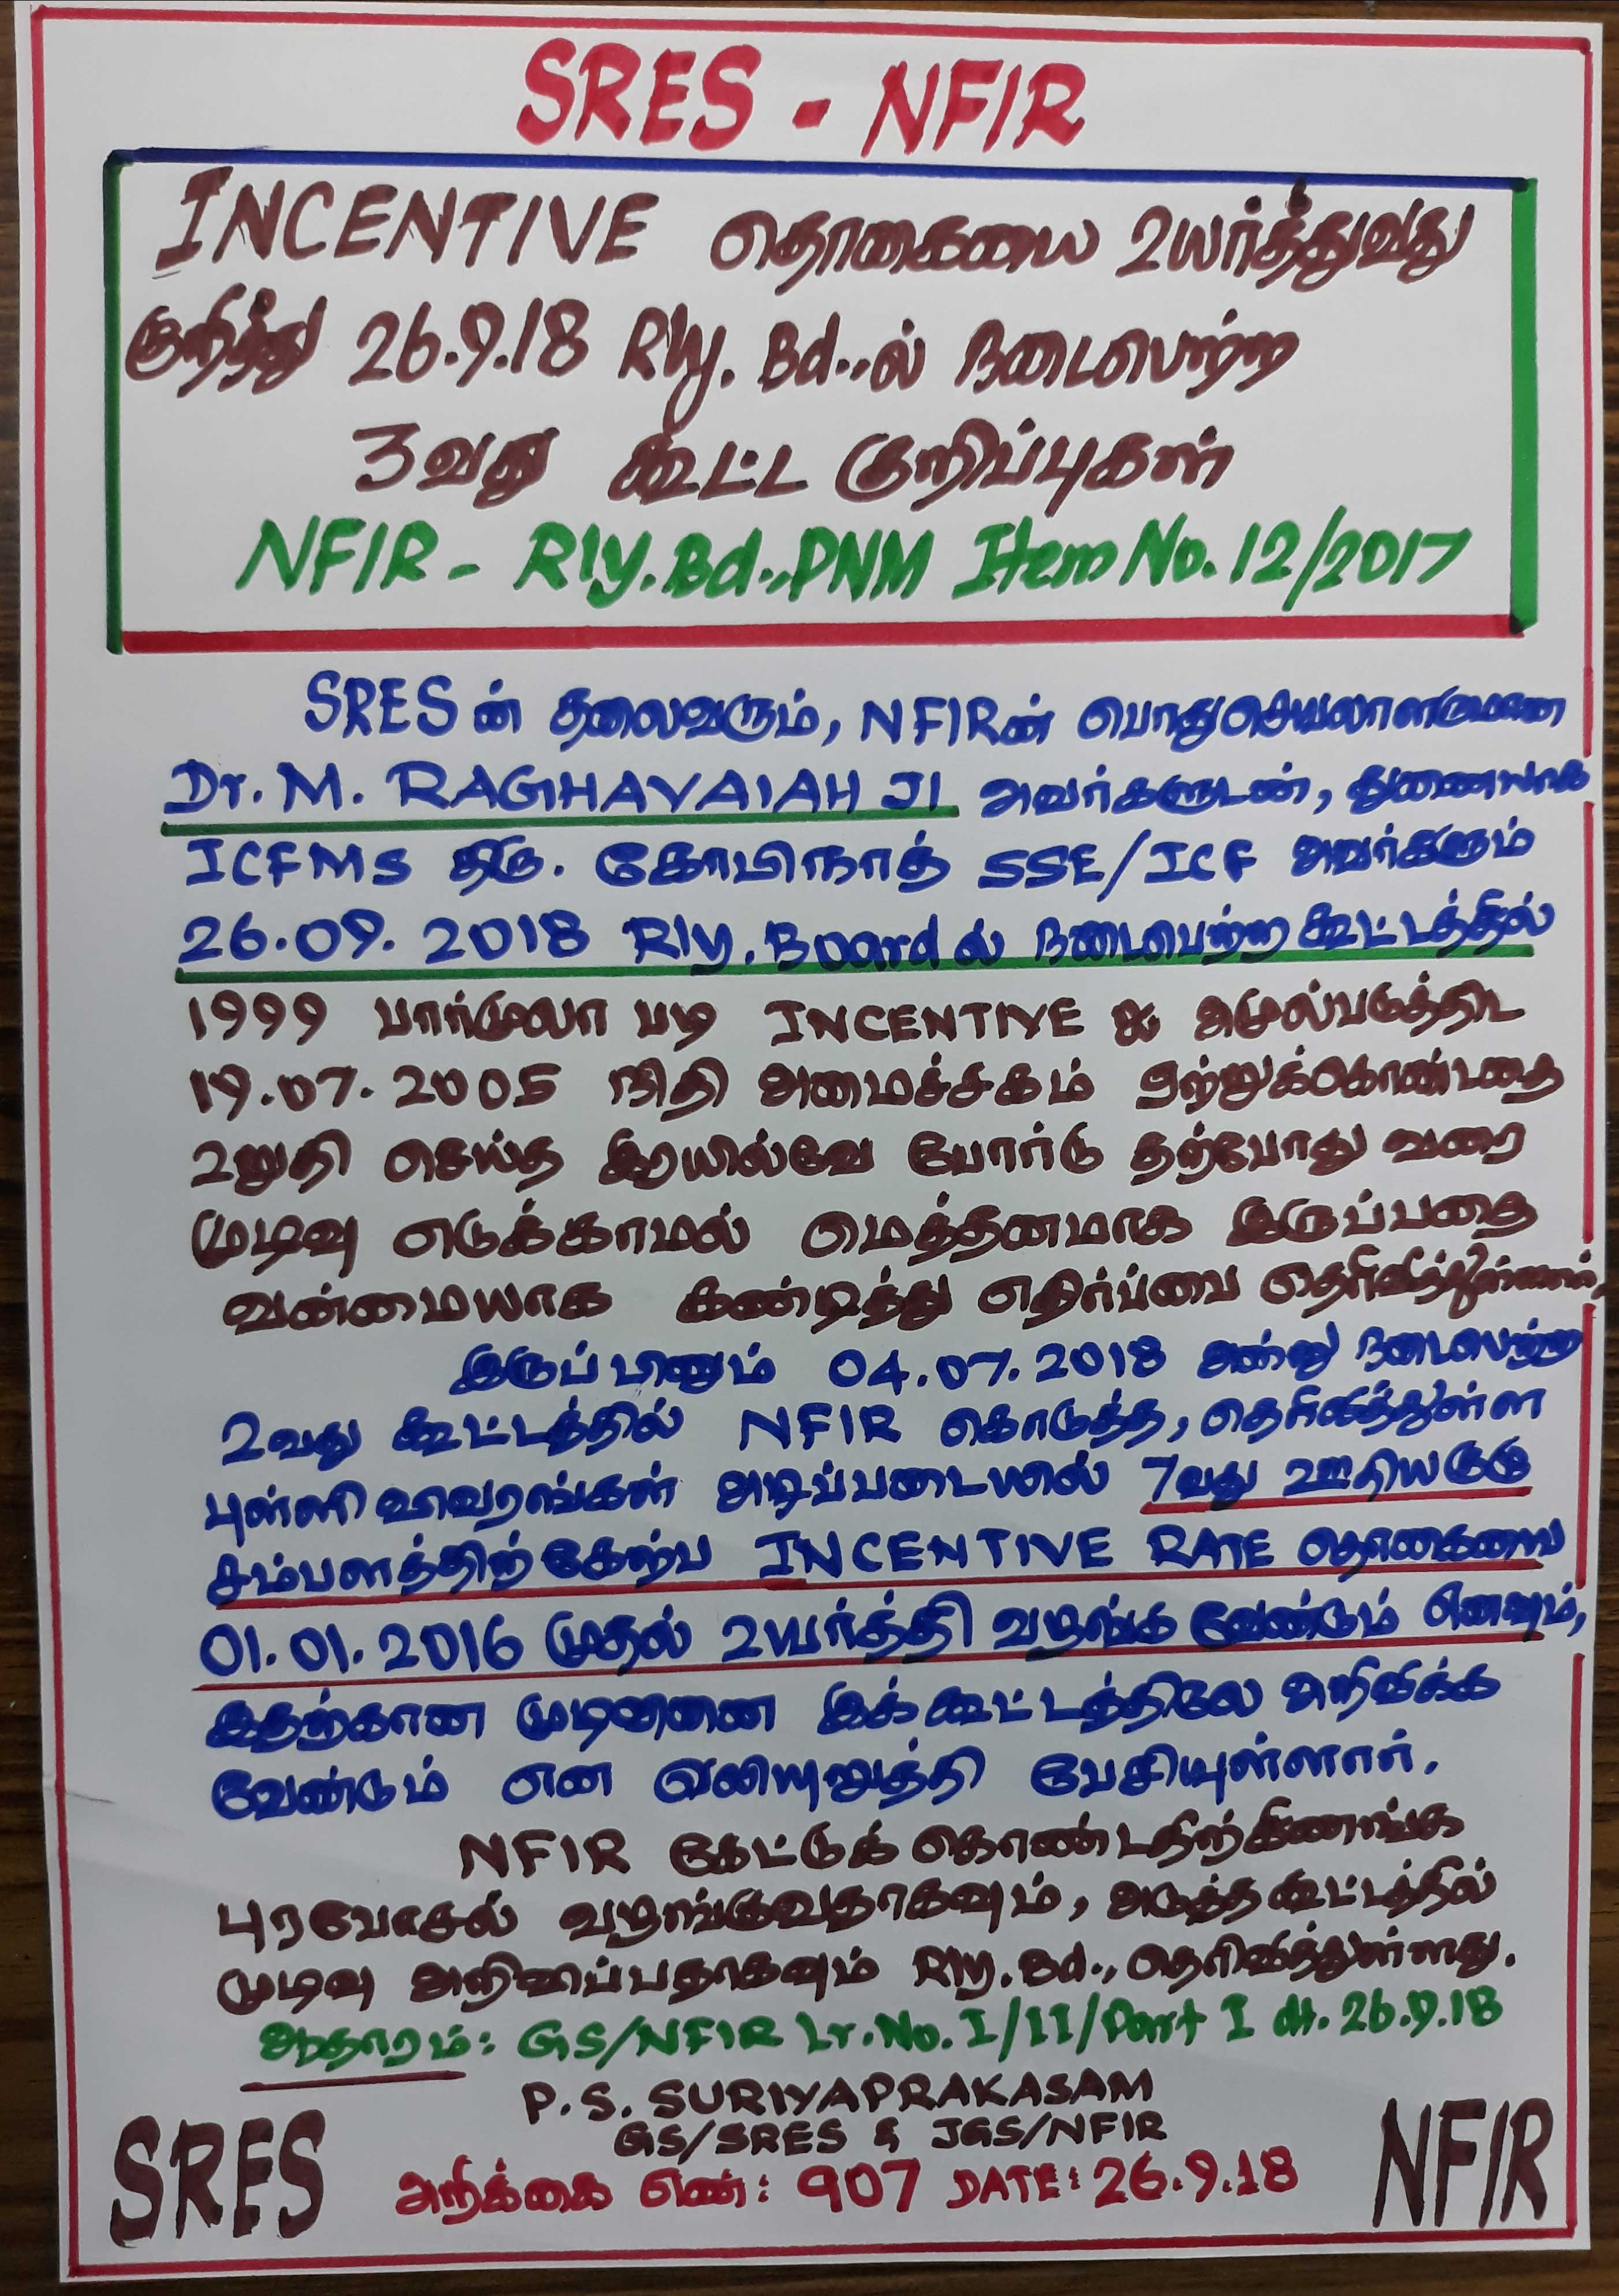 SRES - NFIR
INCENTIVE தொகையை உயர்த்துவது
குறித்து 26.9.18 Rly. Bd..ல் நடைபெற்ற
3வது கூட்ட குறிப்புகள்
NFIR - Rly.Bd.,PNM Item No. 12/2017
SRESன் தலைவரும், NFIRன் பொதுசெயலாளருமான
Dr. M. RAGHAVAIAH JI அவர்களுடன், துணையாக
ICFMS திரு. கோபிநாத் SSE/ICF அவர்களும்
26.09.2018 Rly. Boardல் நடைபெற்ற கூட்டத்தில்
1999 பார்முலா படி INCENTIVE ஐ அமுல்படுத்திட
19.07.2005 நிதி அமைச்சகம் ஏற்றுக்கொண்டதை
உறுதி செய்த இரயில்வே போர்டு தற்போது வரை
முடிவு எடுக்காமல் மெத்தனமாக இருப்பதை
வன்மையாக கண்டித்து எதிர்ப்பை தெரிவித்துள்ளார்.
இருப்பினும் 04.07.2018 அன்று நடைபெற்ற
2வது கூட்டத்தில் NFIR கொடுத்த, தெரிவித்துள்ள
புள்ளி விவரங்கள் அடிப்படையில் 7வது ஊதியகுழு
சம்பளத்திற்கேற்ப INCENTIVE RATE தொகையை
01.01.2016 முதல் உயர்த்தி வழங்க வேண்டும் எனவும்,
இதற்கான முடிவினை இக்கூட்டத்திலே அறிவிக்க
வேண்டும் என வலியுறுத்தி பேசியுள்ளார்.
NFIR கேட்டுக் கொண்டதிற்கிணங்க
புரபோசல் வழங்குவதாகவும், அடுத்த கூட்டத்தில்
முடிவு அறிவிப்பதாகவும் Rly.Bd., தெரிவித்துள்ளது.
ஆதாரம்: GS/NFIR Lr.No.I/11/Part I dt. 26.9.18
P.S. SURIYAPRAKASAM
GS/SRES & JGS/NFIR
SRES அறிக்கை எண்: 907 DATE: 26.9.18 NFIR